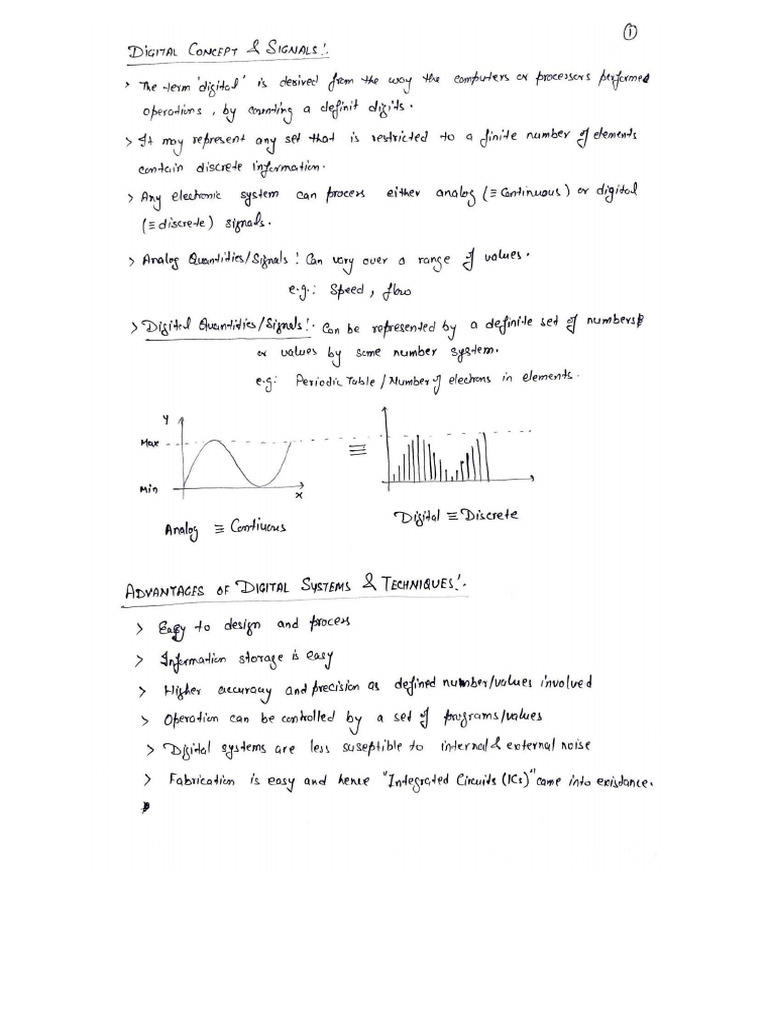 ①
DIGITAL CONCEPT & SIGNALS:
> The term 'digital' is desired from the way the computers or processors performed
operations, by counting a definit digits.
> It may represent any set that is restricted to a finite number of elements
contain discrete information.
> Any electronic system can process either analog (≡ Continuous) or digital
(≡ discrete) signals.
> Analog Quantities/Signals: Can vary over a range of values.
e.g.: Speed, flow
> Digital Quantities/Signals: Can be represented by a definite set of numbers
or values by some number system.
e.g: Periodic Table / Number of electrons in elements.
Y
Max
≡
Min
X
Analog ≡ Contiuous
Digital ≡ Discrete
ADVANTAGES OF DIGITAL SYSTEMS & TECHNIQUES:
> Easy to design and process
> Information storage is easy
> Higher accuracy and precision as defined number/values involved
> Operation can be controlled by a set of programs/values
> Digital systems are less suseptible to internal & external noise
> Fabrication is easy and hence "Integrated Circuits (ICs)" came into existance.